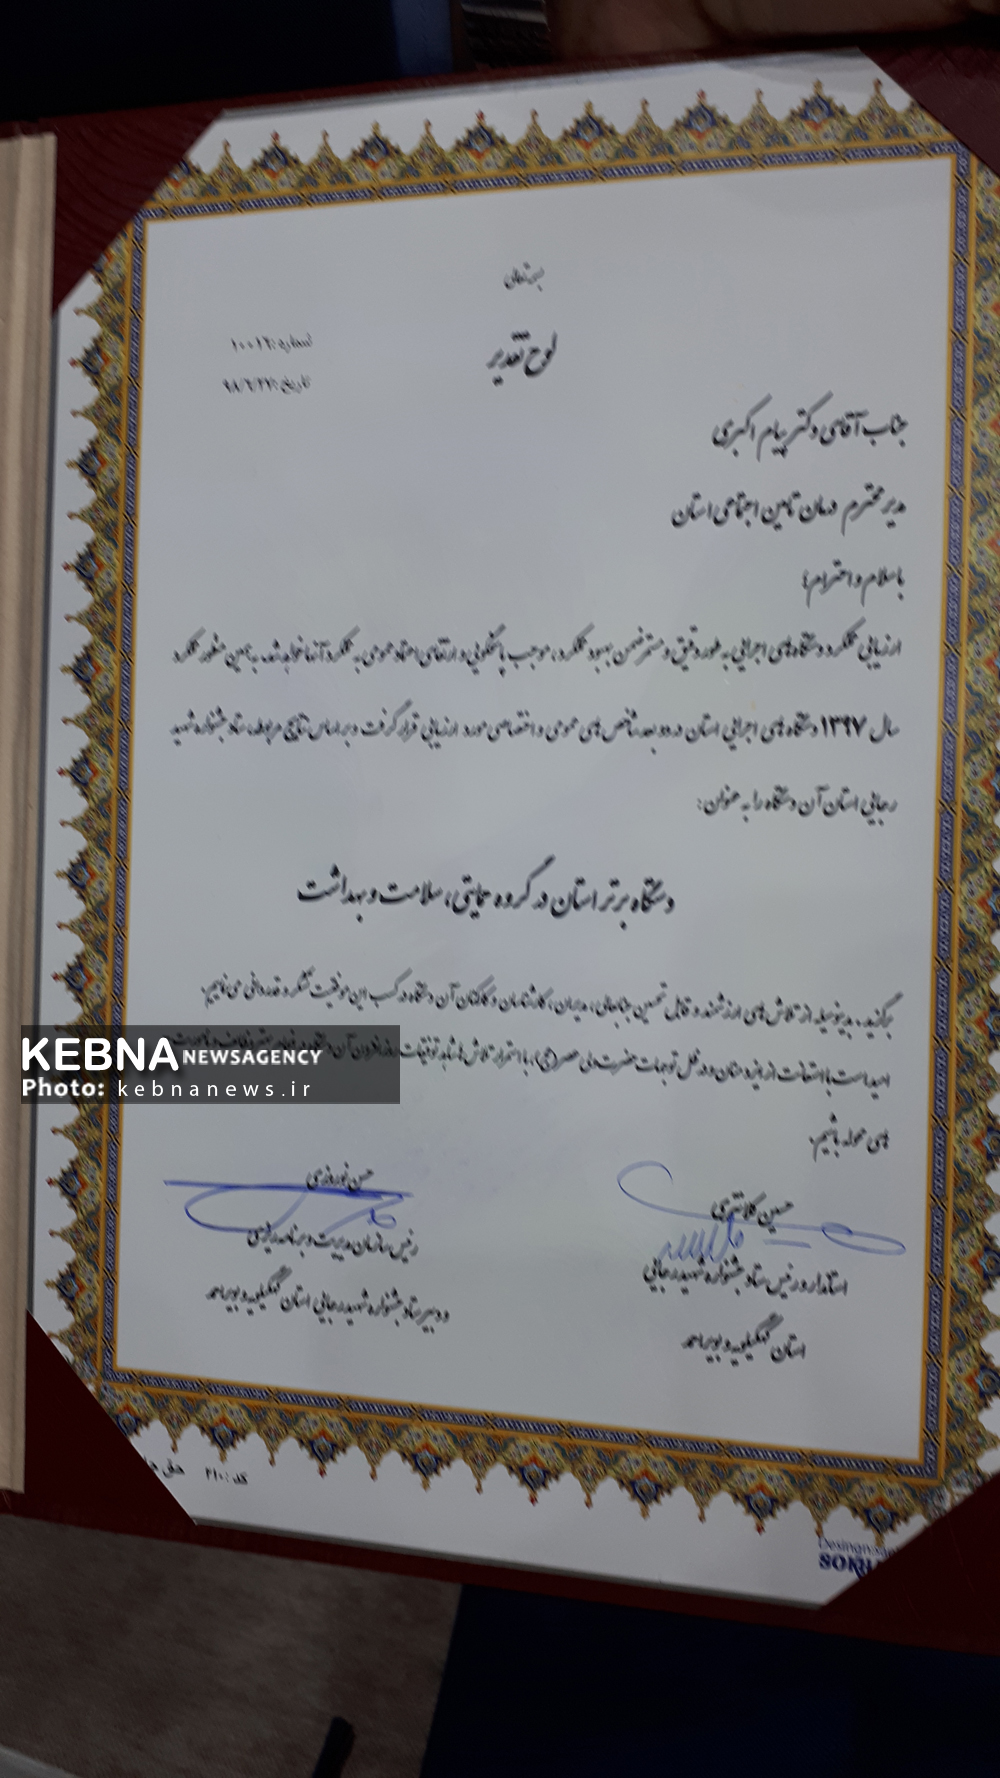 بسمه‌تعالی
لوح تقدیر
شماره: ۱۰۰۱۶
تاریخ: ۹۸/۶/۲۷
جناب آقای دکتر پیام اکبری
مدیر محترم درمان تامین اجتماعی استان
با سلام و احترام؛
ارزیابی عملکرد دستگاه‌های اجرایی به طور دقیق و مستمر ضمن بهبود عملکرد، موجب پاسخگویی و ارتقای اعتماد عمومی به عملکرد آنها خواهد شد. به همین منظور عملکرد
سال ۱۳۹۷ دستگاه‌های اجرایی استان در دو بعد شاخص‌های عمومی و اختصاصی مورد ارزیابی قرار گرفت و بر اساس نتایج مربوطه، ستاد جشنواره شهید
رجایی استان آن دستگاه را به عنوان:
دستگاه برتر استان در گروه حمایتی، سلامت و بهداشت
برگزید. بدینوسیله از تلاش‌های ارزشمند و قابل تحسین جنابعالی، مدیران، کارشناسان و کارکنان آن دستگاه در کسب این موفقیت تشکر و قدردانی می‌نماییم.
امید است با استعانت از ایزد منان و در ظل توجهات حضرت ولی عصر(عج)، با استمرار تلاش‌ها شاهد توفیقات روزافزون آن دستگاه
های محوله باشیم.
KEBNA NEWSAGENCY
Photo: kebnanews.ir
حسین کلانتری
استاندار و رئیس ستاد جشنواره شهید رجایی
استان کهگیلویه و بویراحمد
حسن نوروزی
رئیس سازمان مدیریت و برنامه ریزی
و دبیر ستاد جشنواره شهید رجایی استان کهگیلویه و بویراحمد
کد: ۲۱۰ حق